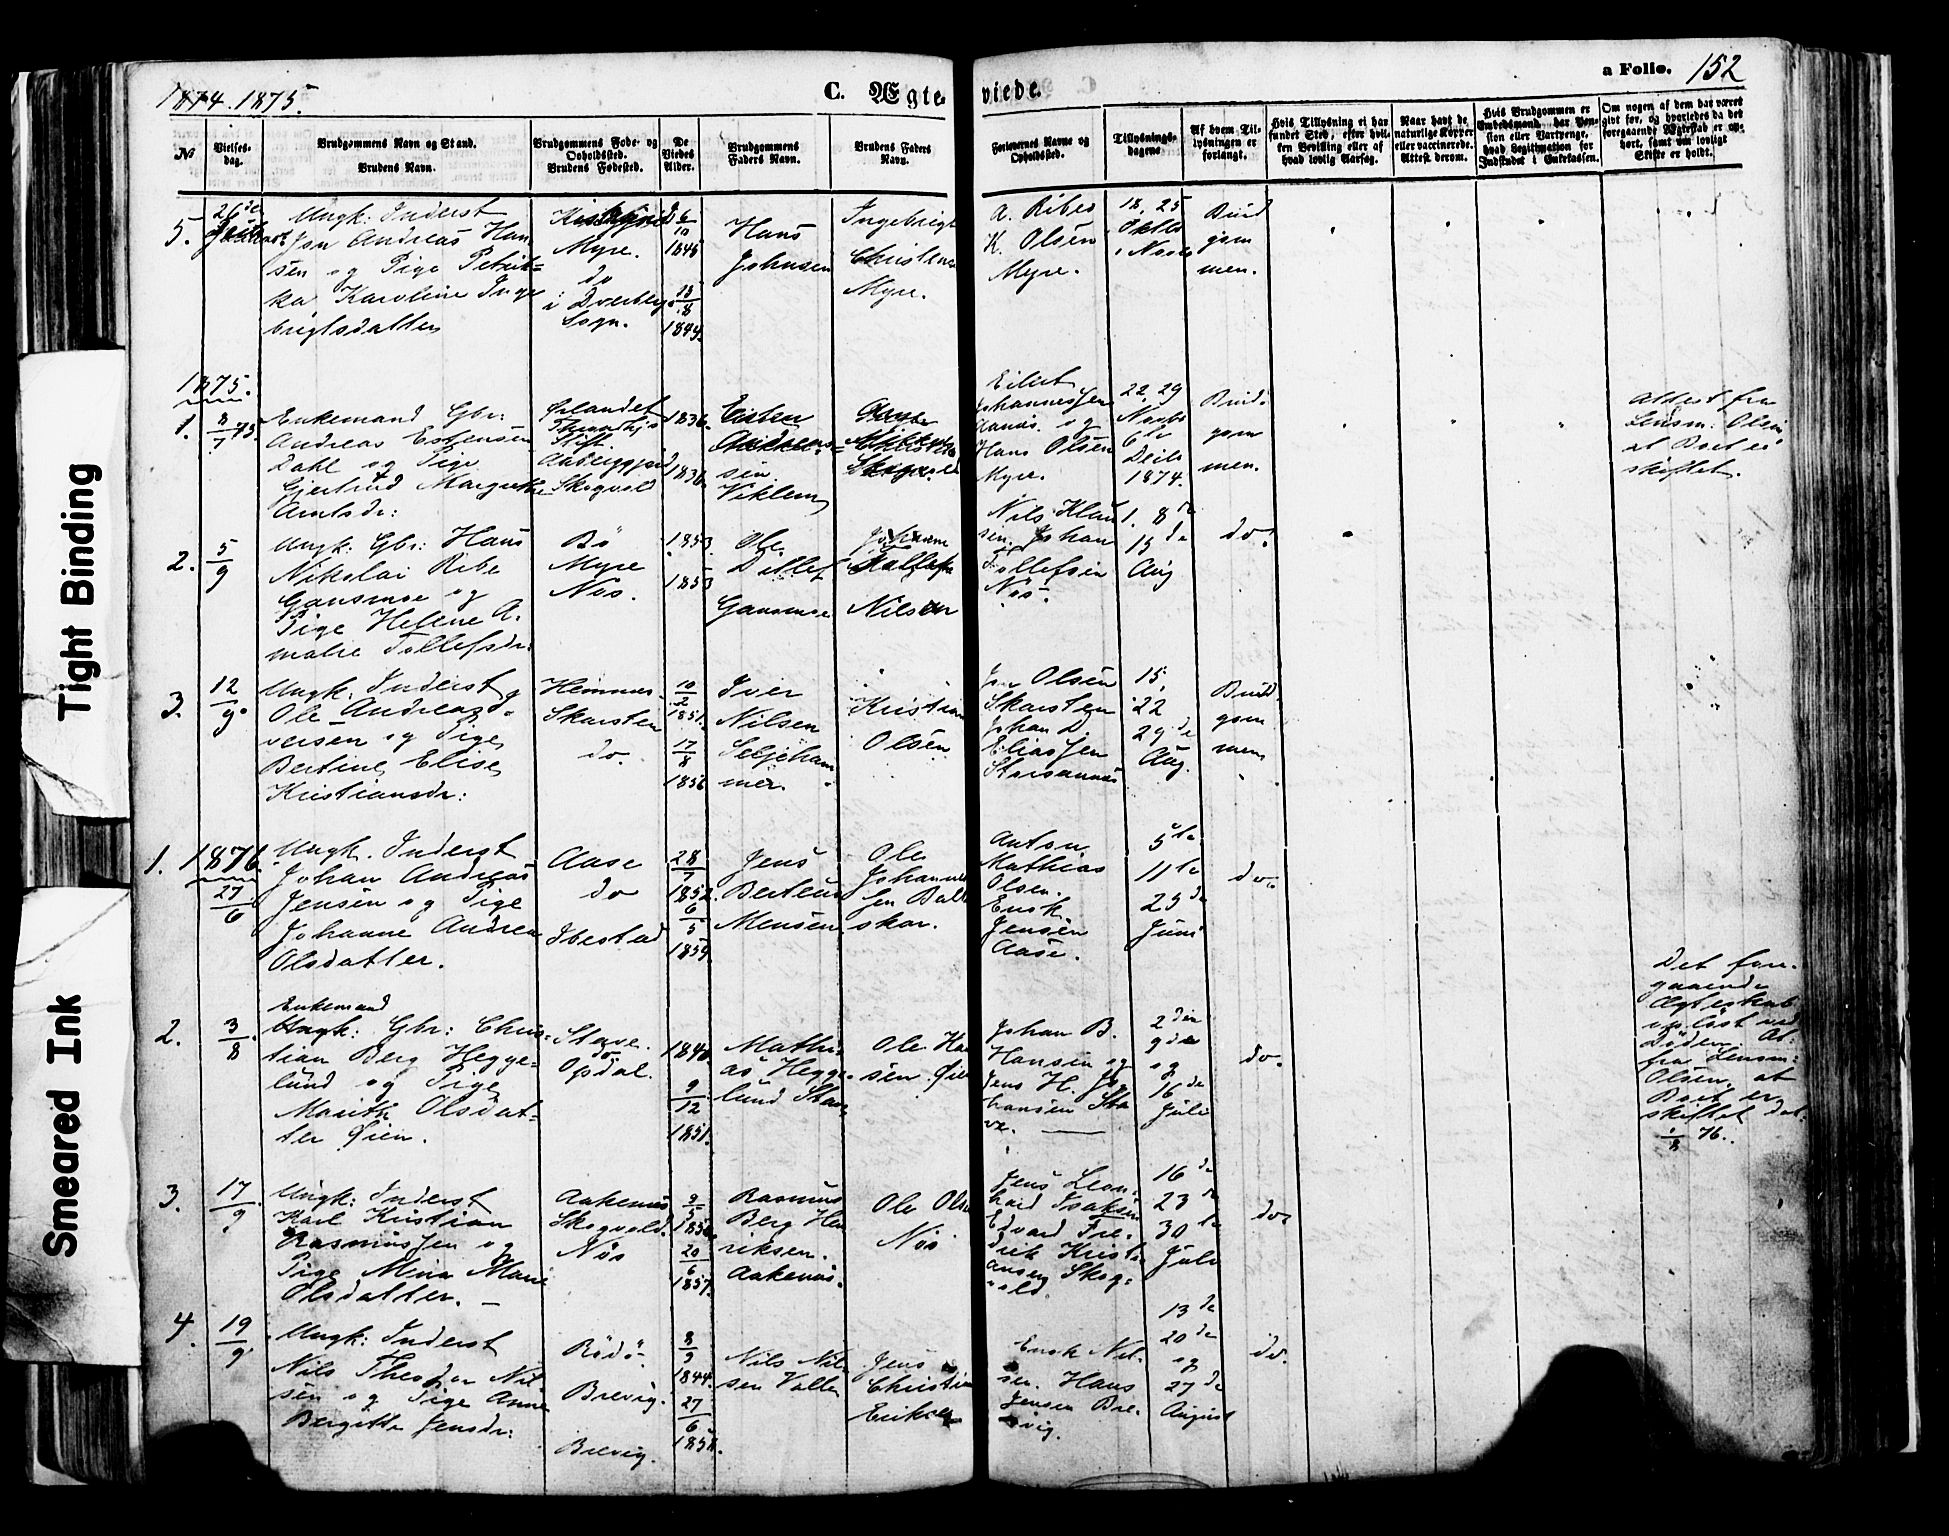 Tight Binding
Smeared Ink
1874. 1875.
C. Ægte-
viede.
a Folio. 152
No
Vielses-
dag.
Brudgommens Navn og Stand.
Brudens Navn.
Brudgommens Føde- og
Opholdssted.
Brudens Fødested.
De
Viedes
Alder.
Brudgommens
Faders Navn.
Brudens Faders
Navn.
Forlovernes Navne og
Opholdssted.
Tillysnings-
dagene
Af hvem Til-
lysningen er
forlangt.
Hvis Tillysning ei har
fundet Sted, efter hvil-
ken Bevilling eller af
hvad lovlig Aarsag.
Naar havt de
naturlige Kopper
eller vaccinerede.
Attest derom.
Hvis Brudgommen er
Embedsmand, har Pen-
sion eller Vartpenge,
hvad Legitimation for
Indskudet i Enkekassen.
Om nogen af dem har været
gift før, og hvorledes da det
foregaaende Ægteskab er op-
hørt, samt om lovligt
Skifte er holdt.
5.
26de
Ungk: Inderst
Jon Andreas Han
sen og Pige Petrik-
ka Karoline Inge
brigtsdatter
Myre.
do
i Dverberg
Sogn.
6/10
1845
15/8
1844.
Hans
Johnsen
Ingebrigt
Christens
Myre.
A. Ribes
K. Olsen
Myre.
18. 25
Oktbr
1 Novbr
Brud
gom
men.
1875.
1.
8/7 75.
Enkemand Gbr:
Andreas Estensen
Dahl og Pige
Gjertrud Margrethe
Arntsdr:
Ørlandet
Stift.
Skogvold
1836.
1836.
Esten
Andreas-
sen
Viklem
Skogvold
Eilert
Johannessen
Aanæs. og
Hans Olsen
Myre.
22, 29
Novbr
6te
Decbr
1874.
Brud-
gom
men.
Attest fra
Lensm: Olsen
at Boet er
skiftet.
2.
5/9
Ungk: Gbr: Hans
Nikolai Ribe
Gansmoe og
Pige Helene A-
malie Tollefsdr:
Bö
Myre
Nös.
1853.
1853
Ole
Detlef
Gansmoe
Johan
Tollefsen
Nilsen
Nils Klau
sen. Johan
Tollefsen
Nös.
1. 8de
15de
Aug
do.
3.
12/9.
Ungk. Inderst
Ole Andreas I-
versen og Pige
Bertine Elise
Kristiansdr:
Hemnes.
Skarsten
do.
10/2
1851.
17/8
1856
Iver
Nilsen
Seljeham
mer.
Kristian
Olsen
Jon Olsen
Skarsten
Johan D.
Eliassen
15.
22
29de
Aug.
Brud.
gom
men
1. 1876.
27/6
Ungk. Inderst
Johan Andreas
Jensen og Pige
Johanne Andrea
Olsdatter.
Aase
do
Ibestad
28/7
1852.
6/5
1859.
Jens
Berteus
Mensen.
Ole
Johannes
sen Balte
skar.
Anton
Mathias
Olsen.
Enok
Jensen
Aase.
5te
11te
25de
Juni
do.
2.
3/8.
Enkemand
Ungk: Gbr: Chris-
tian Berg Hegge-
lund og Pige
Marith Olsdat-
ter Øien.
Stave.
do
Opdal.
1840
9/12
1851.
Mathi-
as Hegge-
lund Stave
Ole Han
sen Øien
Johan B.
Hansen og
Jens H. Jo
hansen Sta
ve.
2den
9de
og
16de
Juli
do.
Det fore-
gaaende
Ægteskab
opløst ved
Döden. At-
fra Lensm:
Olsen, at
Boet er
skiftet dat.
1/8 76.
3.
17/9
Ungk: Inderst
Karl Kristian
Rasmussen og
Pige Mina Marie
Olsdatter.
Aakenæs
Skogvold.
Nös
20/6
1857.
Rasmus
Berg Hen
riksen.
Aakenæs.
Ole Olsen
Nös
Jens Leon-
hard Isaksen
Edvard Fre-
drik Kristi-
ansen Skog-
vold.
16de
23de
30te
Juli
do.
4.
19/9.
Ungk: Inderst
Nils Theodor Nil
sen og Pige Anne
Bergitte Jensdr:
Rödö-
Brevig.
Brevig.
8/9
1844.
27/6
1858.
Nils Nil
sen Valla
Jens
Christian
Eriksen
Enok Nil-
sen. Hans
Jensen Bre-
vig.
13de
20de
og
27de
August
do.